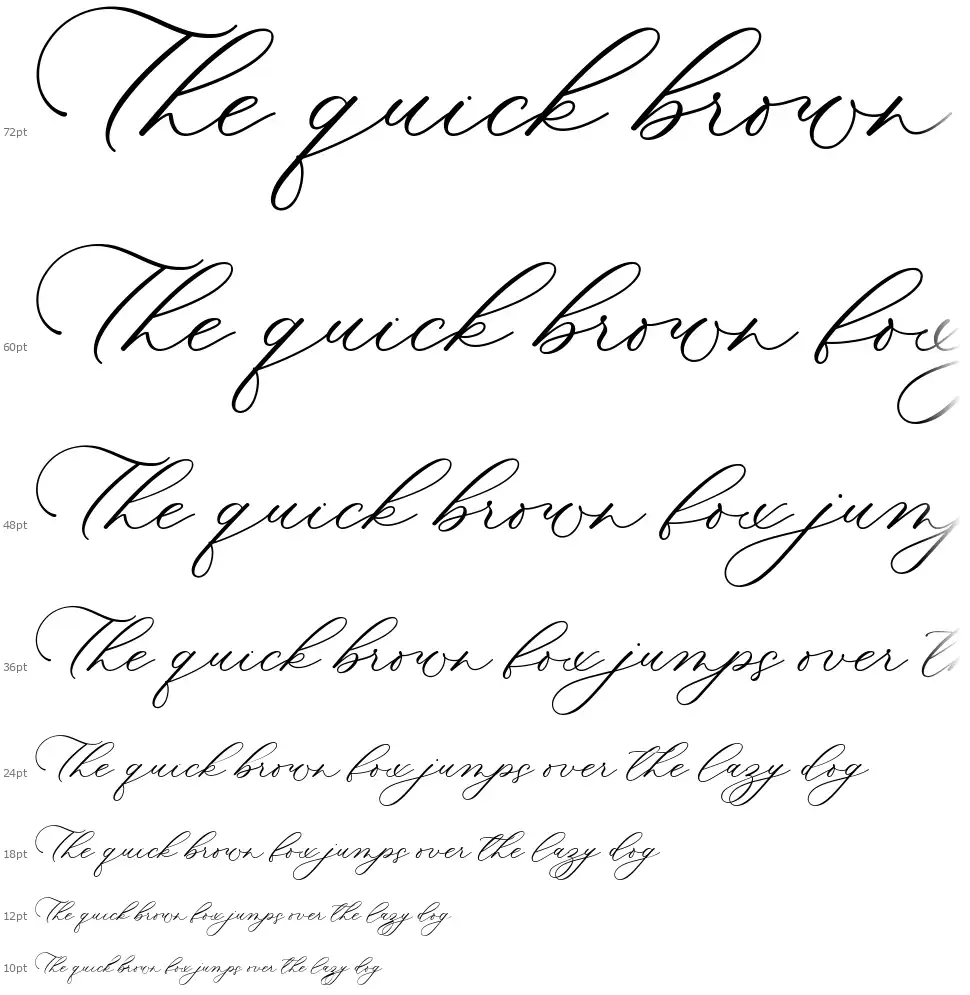 72pt The quick brown
60pt The quick brown fox
48pt The quick brown fox jump
36pt The quick brown fox jumps over th
24pt The quick brown fox jumps over the lazy dog
18pt The quick brown fox jumps over the lazy dog
12pt The quick brown fox jumps over the lazy dog
10pt The quick brown fox jumps over the lazy dog